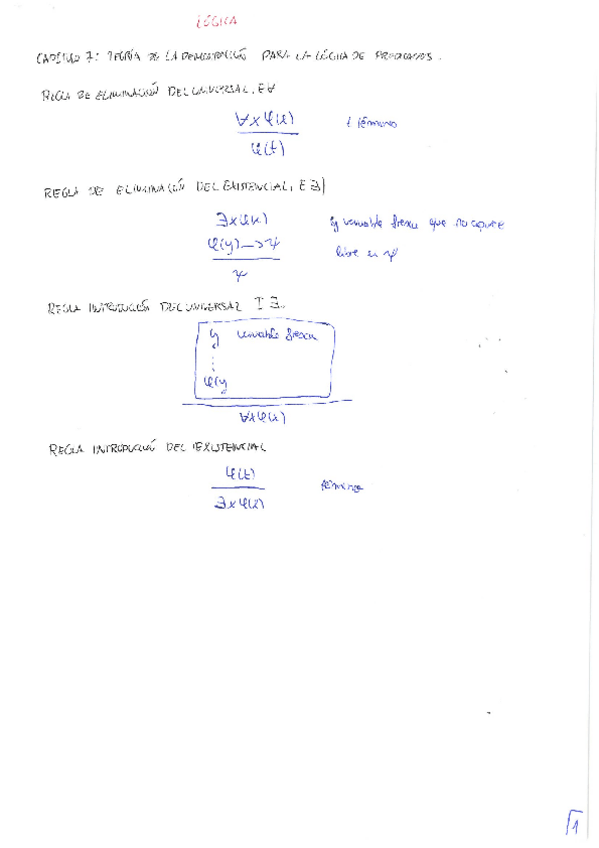 LÓGICA
CAPITULO 7: TEORÍA DE LA DEMOSTRACIÓN PARA LA LÓGICA DE PREDICADOS.
REGLA DE ELIMINACIÓN DEL UNIVERSAL, E∀
∀xφ(x) t término
φ(t)
REGLA DE ELIMINACIÓN DEL EXISTENCIAL, E∃|
∃xφ(x) y variable fresca que no aparece
φ(y)->ψ libre en ψ
ψ
REGLA INTRODUCIÓN DEL UNIVERSAL I∃.
y variable fresca
⋮
φ(y
∀xφ(x)
REGLA INTRODUCCIÓ DEL EXISTENCIAL
φ(t) término
∃xφ(x)
1